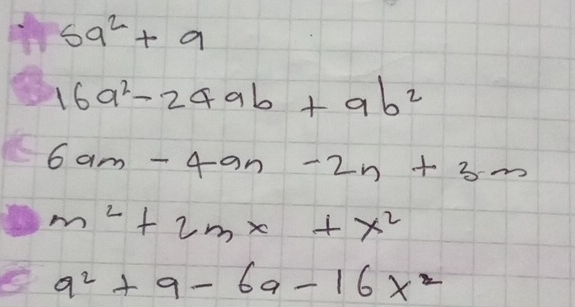 5a² + a
16a² - 24ab + 9b²
6am - 4an - 2n + 3m
m² + 2mx + x²
a² + 9 - 6a - 16x²